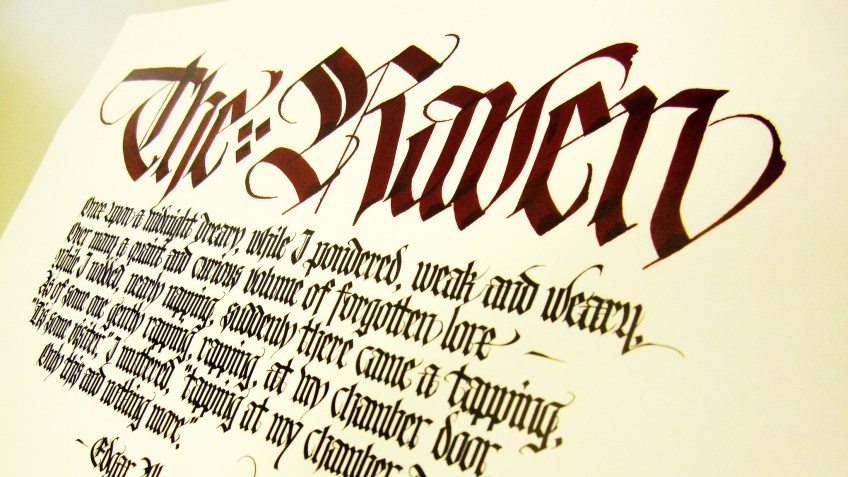 The Raven
Once upon a midnight dreary, while I pondered, weak and weary,
Over many a quaint and curious volume of forgotten lore –
While I nodded, nearly napping, suddenly there came a tapping,
As of some one gently rapping, rapping, at my chamber door
"Tis some visitor," I muttered, "tapping at my chamber
Only this and nothing more."
– Edgar